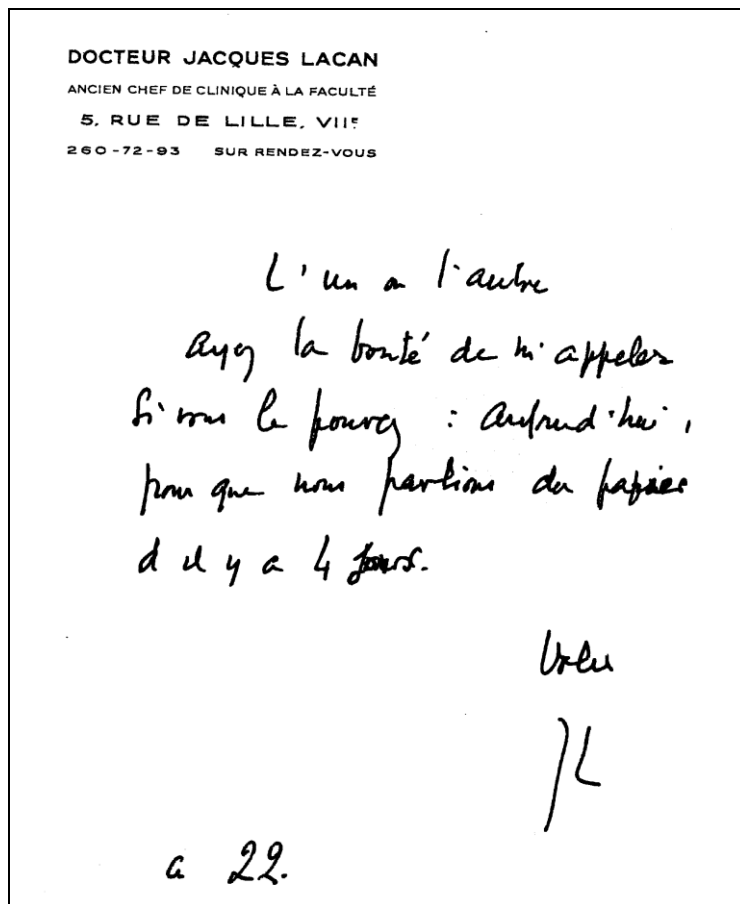 DOCTEUR JACQUES LACAN
ANCIEN CHEF DE CLINIQUE À LA FACULTÉ
5, RUE DE LILLE, VIIE
260-72-93 SUR RENDEZ-VOUS
L'un ou l'autre
ayez la bonté de m'appeler
Si vous le pouvez : aujourd'hui,
pour que nous parlions du papier
d'il y a 4 jours.
Votre
JL
22.